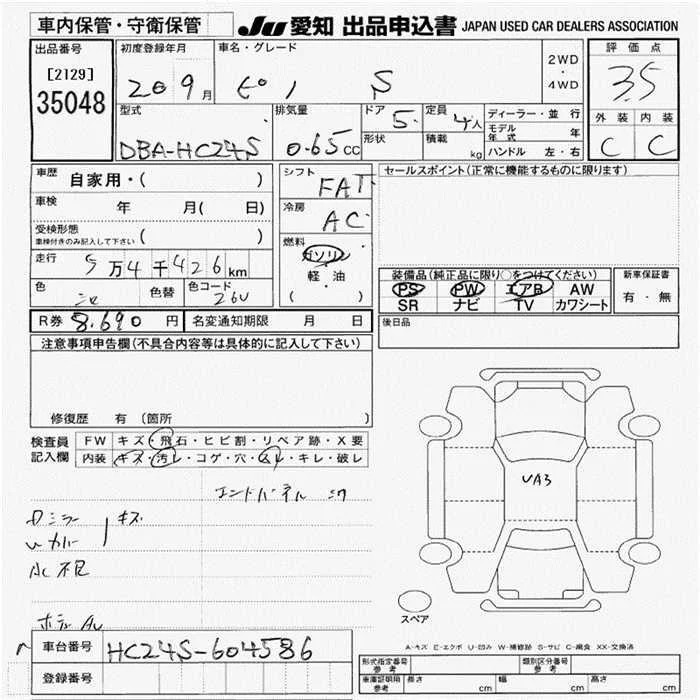 車内保管・守衛保管
JU 愛知 出品申込書 JAPAN USED CAR DEALERS ASSOCIATION
出品番号
[2129]
35048
初度登録年月
20 9月
車名・グレード
ピノ S
2WD
・
4WD
評価点
3.5
外装 内装
C C
型式
DBA-HC24S
排気量
0.65CC
ドア 5
形状
定員 4人
積載 kg
ディーラー・並行
モデル年式 年
ハンドル 左・右
車歴
自家用・( )
車検 年 月( 日)
受検形態
車検付きのみ記入して下さい ( )
走行 5万4千426km
色 シロ 色替 色コード 26U
シフト FAT
冷房 AC
燃料
ガソリン
・
軽・油
( )
セールスポイント(正常に機能するものに限ります)
装備品(純正品に限り○をつけてください)
PS PW エアB AW
SR ナビ TV カワシート
新車保証書
有・無
R券 8,690円 名変通知期限 月 日
後日品
注意事項申告欄(不具合内容等は具体的に記入して下さい)
修復歴 有 (箇所 )
検査員記入欄
FW キズ・飛石・ヒビ割・リペア跡・X要
内装 キズ・汚レ・コゲ・穴・スレ・キレ・破レ
エンドパネル
ドミラー キズ
〃カバー
AC不良
ボディ
UA3
スペア
A-キズ E-エクボ U-凹み W-補修跡 S-サビ C-腐食 XX-交換済
車台番号 HC24S-604586
登録番号
形式指定番号参考
類別区分番号参考
車庫証明用参考 長さ cm 幅 cm 高さ cm